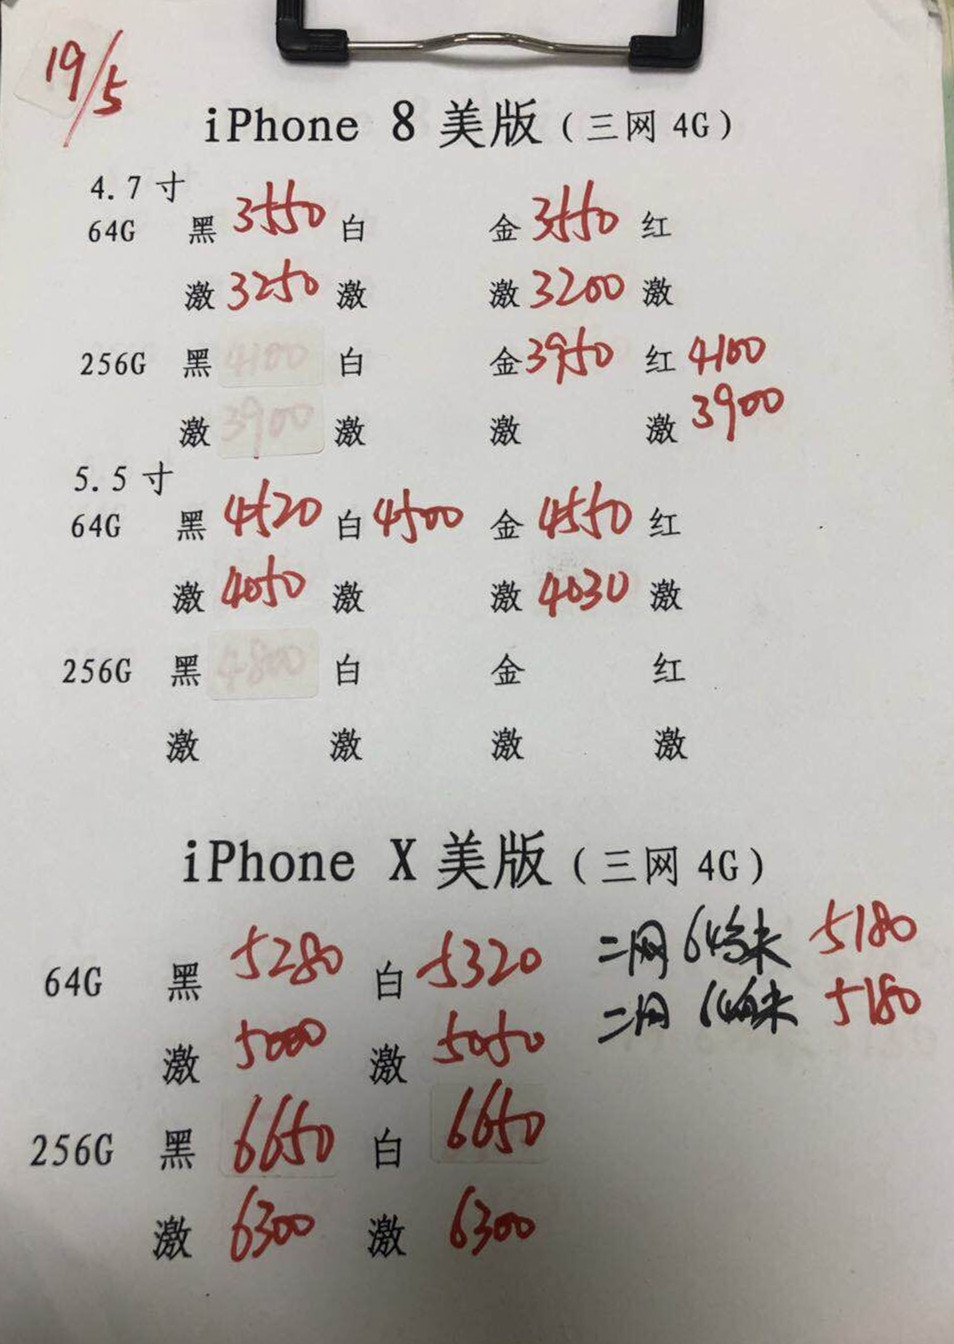 19/5
iPhone 8 美版（三网 4G）
4.7 寸
64G 黑 3550 白 金 3550 红
激 3250 激 激 3200 激
256G 黑 4100 白 金 3950 红 4100
激 3900 激 激 激 3900
5.5 寸
64G 黑 4520 白 4500 金 4550 红
激 4050 激 激 4030 激
256G 黑 4800 白 金 红
激 激 激 激
iPhone X 美版（三网 4G）
64G 黑 5280 白 5320 二网 64 未 5180
激 5000 激 5050 二网 未 5180
256G 黑 6650 白 6650
激 6300 激 6300